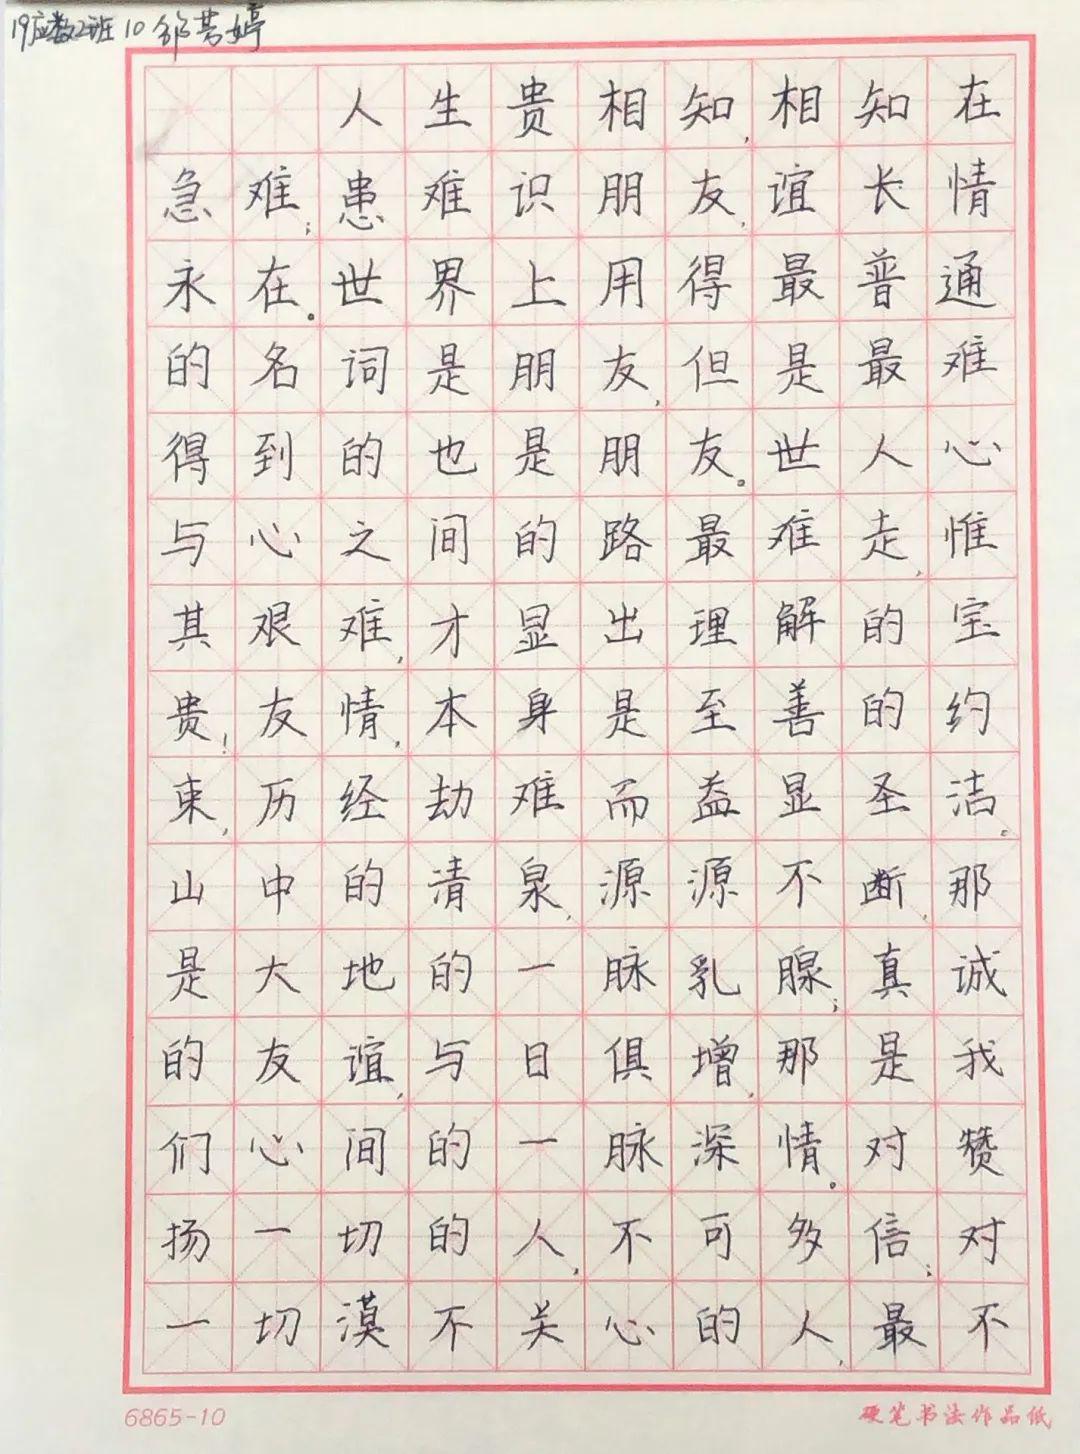 19应数2班 10 邹芸婷
人生贵相知,相知在
急难;患难识朋友,谊长情
永在。世界上用得最普通
的名词是朋友,但是最难
得到的也是朋友。世人心
与心之间的路最难走,惟
其艰难,才显出理解的宝
贵!友情,本身是至善的约
束,历经劫难而益显圣洁。
山中的清泉,源源不断,那
是大地的一脉乳腺;真诚
的友谊,与日俱增,那是我
们心间的一脉深情。对赞
扬一切的人,不可多信;对
一切漠不关心的人,最不
6865-10
硬笔书法作品纸